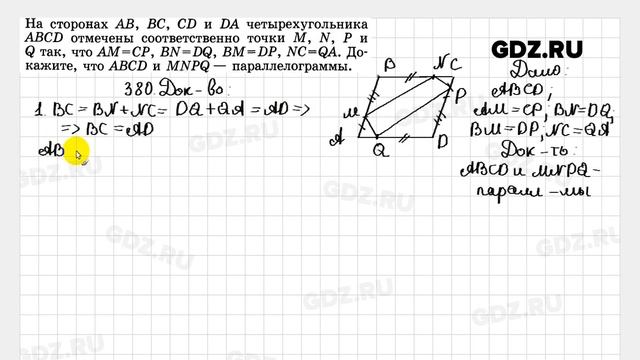 На сторонах AB, BC, CD и DA четырехугольника
ABCD отмечены соответственно точки M, N, P и
Q так, что AM=CP, BN=DQ, BM=DP, NC=QA. До-
кажите, что ABCD и MNPQ — параллелограммы.
GDZ.RU
380. Док-во:
1. BC = BN + NC = DQ + QA = AD =>
=> BC = AD
AB
B
N C
P
M
A
Q
D
Дано:
ABCD,
AM = CP; BN = DQ;
BM = DP; NC = QA
Док-ть:
ABCD и MNPQ -
паралл-мы
GDZ.RU
GDZ.RU
GDZ.RU
GDZ.RU
GDZ.RU